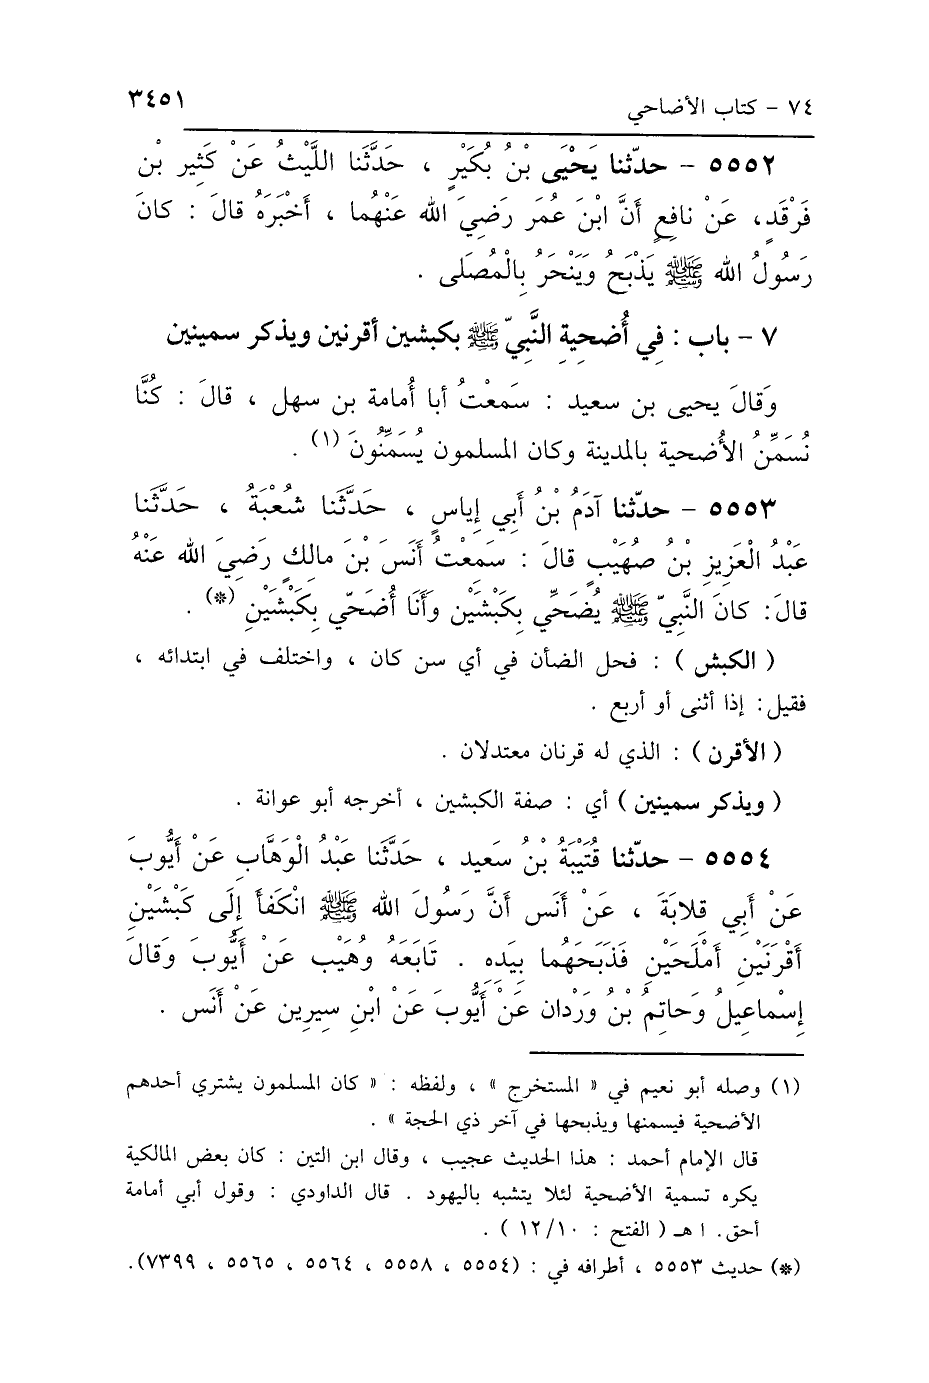 ٧٤ - كتاب الأضاحي ٣٤٥١
٥٥٥٢ - حدّثنا يَحْيَى بْنُ بُكَيْرٍ ، حَدَّثَنا اللَّيْثُ عَنْ كَثِيرِ بْنِ
فَرْقَدٍ، عَنْ نافِعٍ أَنَّ ابْنَ عُمَرَ رَضِيَ الله عَنْهُما ، أَخْبَرَهُ قالَ : كانَ
رَسُولُ الله ﷺ يَذْبَحُ وَيَنْحَرُ بِالْمُصَلى .
٧ - باب : فِي أُضحِيةِ النَّبِيّ ﷺ بكبشين أقرنين ويذكر سمينين
وَقالَ يحيى بن سعيد : سَمَعْتُ أبا أُمامة بن سهل ، قالَ : كُنَّا
نُسَمِّنُ الأُضحية بالمدينة وكان المسلمون يُسَمِّنُونَ (١) .
٥٥٥٣ - حدّثنا آدَمُ بْنُ أَبي إياسٍ ، حَدَّثَنا شُعْبَةُ ، حَدَّثَنا
عَبْدُ الْعَزِيزِ بْنُ صُهَيْبٍ قالَ : سَمَعْتُ أَنَسَ بْنَ مالكٍ رَضِيَ الله عَنْهُ
قالَ: كانَ النَّبِيّ ﷺ يُضَحِّي بِكَبْشَيْنِ وَأَنا أُضَحّي بِكَبْشَيْنِ (*) .
( الكبش ) : فحل الضأن في أي سن كان ، واختلف في ابتدائه ،
فقيل: إذا أثنى أو أربع .
( الأقرن ) : الذي له قرنان معتدلان .
( ويذكر سمينين ) أي : صفة الكبشين ، أخرجه أبو عوانة .
٥٥٥٤ - حدّثنا قُتَيْبَةُ بْنُ سَعيد ، حَدَّثَنا عَبْدُ الْوَهَّابِ عَنْ أَيُّوبَ
عَنْ أَبي قِلابَةَ ، عَنْ أَنَس أَنَّ رَسُولَ الله ﷺ انْكَفَأَ إِلَى كَبْشَيْنِ
أَقْرَنَيْنِ أَمْلَحَيْنِ فَذَبَحَهُما بِيَدِه . تَابَعَهُ وُهَيْب عَنْ أَيُّوبَ وَقالَ
إِسْماعِيلُ وَحاتِمُ بْنُ وَرْدان عَنْ أَيُّوبَ عَنْ ابْنِ سِيرِين عَنْ أَنَس .
(١) وصله أبو نعيم في « المستخرج » ، ولفظه : « كان المسلمون يشتري أحدهم
الأضحية فيسمنها ويذبحها في آخر ذي الحجة » .
قال الإمام أحمد : هذا الحديث عجيب ، وقال ابن التين : كان بعض المالكية
يكره تسمية الأضحية لئلا يتشبه باليهود . قال الداودي : وقول أبي أمامة
أحق. ا هـ ( الفتح : ١٢/١٠ ) .
(*) حديث ٥٥٥٣ ، أطرافه في : (٥٥٥٤ ، ٥٥٥٨ ، ٥٥٦٤ ، ٥٥٦٥ ، ٧٣٩٩).